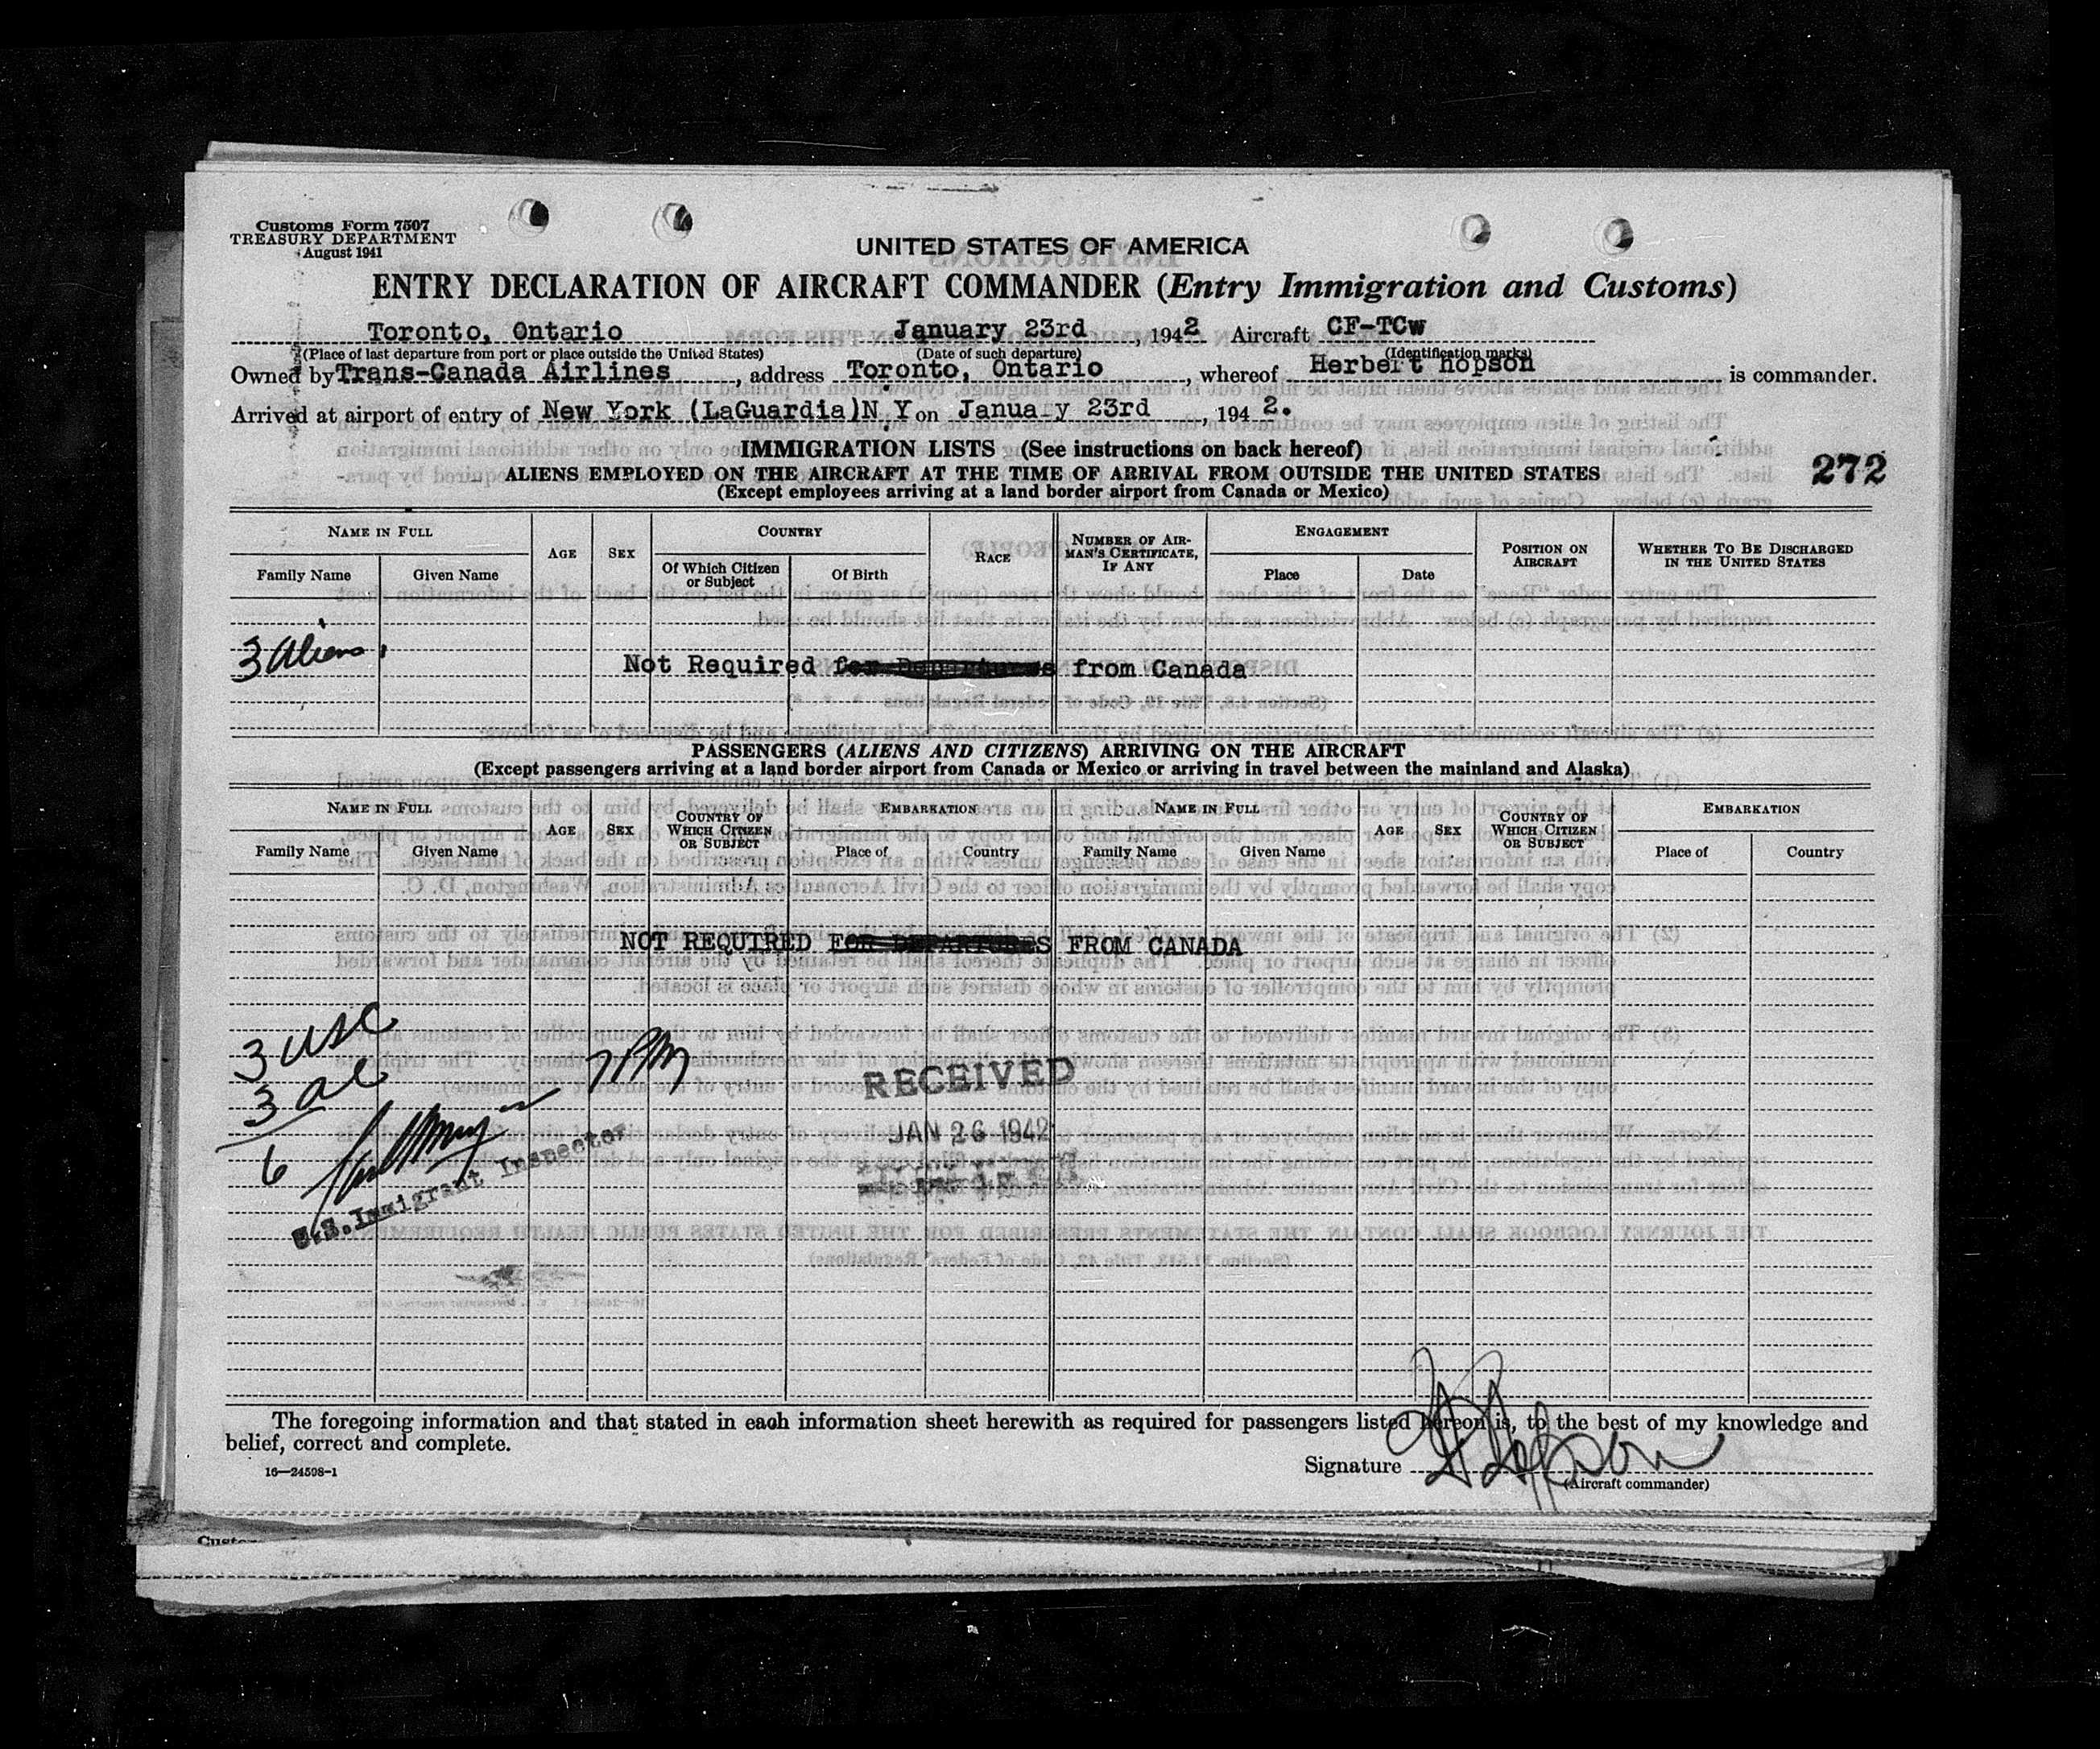 Customs Form 7507
TREASURY DEPARTMENT
August 1941
UNITED STATES OF AMERICA
ENTRY DECLARATION OF AIRCRAFT COMMANDER (Entry Immigration and Customs)
Toronto, Ontario January 23rd, 1942 Aircraft CF-TCw
(Place of last departure from port or place outside the United States) (Date of such departure) (Identification marks)
Owned by Trans-Canada Airlines, address Toronto, Ontario, whereof Herbert hopson is commander.
Arrived at airport of entry of New York (LaGuardia)N Y on Janua y 23rd, 1942.
IMMIGRATION LISTS (See instructions on back hereof)
ALIENS EMPLOYED ON THE AIRCRAFT AT THE TIME OF ARRIVAL FROM OUTSIDE THE UNITED STATES
272
(Except employees arriving at a land border airport from Canada or Mexico)
NAME IN FULL AGE SEX COUNTRY RACE NUMBER OF AIRMAN'S CERTIFICATE, IF ANY ENGAGEMENT POSITION ON AIRCRAFT WHETHER TO BE DISCHARGED IN THE UNITED STATES
Family Name Given Name Of Which Citizen or Subject Of Birth Place Date
3 Aliens
Not Required for Departures from Canada
PASSENGERS (ALIENS AND CITIZENS) ARRIVING ON THE AIRCRAFT
(Except passengers arriving at a land border airport from Canada or Mexico or arriving in travel between the mainland and Alaska)
NAME IN FULL AGE SEX COUNTRY OF WHICH CITIZEN OR SUBJECT EMBARKATION NAME IN FULL AGE SEX COUNTRY OF WHICH CITIZEN OR SUBJECT EMBARKATION
Family Name Given Name Place of Country Family Name Given Name Place of Country
NOT REQUIRED FOR DEPARTURES FROM CANADA
3 USC
3 al
6
7 PM
U.S. Immigrant Inspector
RECEIVED
JAN 26 1942
The foregoing information and that stated in each information sheet herewith as required for passengers listed hereon is, to the best of my knowledge and
belief, correct and complete.
16—24598-1
Signature H Hopson
(Aircraft commander)